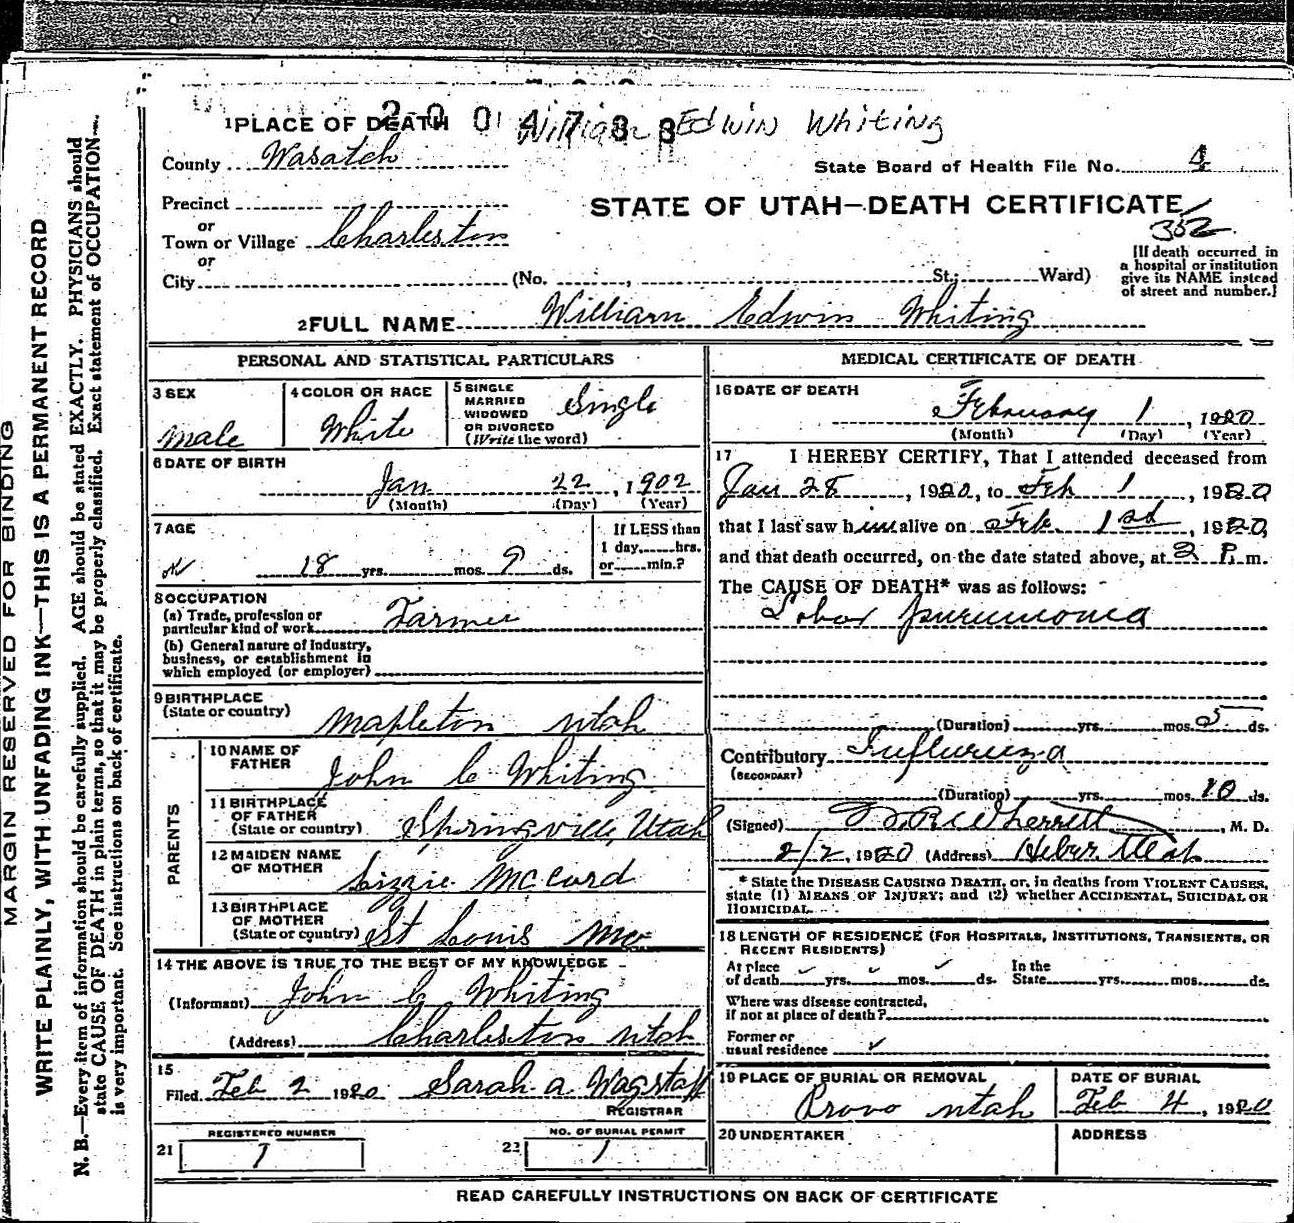 MARGIN RESERVED FOR BINDING
WRITE PLAINLY, WITH UNFADING INK—THIS IS A PERMANENT RECORD
N. B.—Every item of information should be carefully supplied. AGE should be stated EXACTLY. PHYSICIANS should
state CAUSE OF DEATH in plain terms, so that it may be properly classified. Exact statement of OCCUPATION
is very important. See instructions on back of certificate.
2004788
William Edwin Whiting
1 PLACE OF DEATH
County Wasatch
State Board of Health File No. 4
Precinct
or
STATE OF UTAH—DEATH CERTIFICATE
352
Town or Village Charleston
or
City (No. , St.; Ward)
[If death occurred in
a hospital or institution
give its NAME instead
of street and number.]
2 FULL NAME William Edwin Whiting
PERSONAL AND STATISTICAL PARTICULARS
3 SEX
Male
4 COLOR OR RACE
White
5 SINGLE
MARRIED
WIDOWED
OR DIVORCED
(Write the word)
Single
6 DATE OF BIRTH
Jan 22, 1902
(Month) (Day) (Year)
7 AGE
18 yrs. mos. 9 ds.
If LESS than
1 day, hrs.
or min.?
8 OCCUPATION
(a) Trade, profession or
particular kind of work Farmer
(b) General nature of industry,
business, or establishment in
which employed (or employer)
9 BIRTHPLACE
(State or country) Mapleton Utah
PARENTS
10 NAME OF
FATHER John C Whiting
11 BIRTHPLACE
OF FATHER
(State or country) Springville, Utah
12 MAIDEN NAME
OF MOTHER Lizzie McCurd
13 BIRTHPLACE
OF MOTHER
(State or country) St Louis Mo
14 THE ABOVE IS TRUE TO THE BEST OF MY KNOWLEDGE
(Informant) John C Whiting
(Address) Charleston Utah
15
Filed Feb 2 1920 Sarah A. Wagstaff
REGISTRAR
REGISTERED NUMBER
21 1
NO. OF BURIAL PERMIT
22 1
MEDICAL CERTIFICATE OF DEATH
16 DATE OF DEATH
February 1, 1920
(Month) (Day) (Year)
17 I HEREBY CERTIFY, That I attended deceased from
Jan 28, 1920, to Feb 1, 1920
that I last saw him alive on Feb. 1st, 1920,
and that death occurred, on the date stated above, at 2 P. m.
The CAUSE OF DEATH* was as follows:
Lobar pneumonia
(Duration) yrs. mos. 5 ds.
Contributory Influenza
(SECONDARY)
(Duration) yrs. mos. 10 ds.
(Signed) Wherritt, M. D.
2/2, 1920 (Address) Heber Utah
* State the DISEASE CAUSING DEATH, or, in deaths from VIOLENT CAUSES,
state (1) MEANS OF INJURY; and (2) whether ACCIDENTAL, SUICIDAL OR
HOMICIDAL.
18 LENGTH OF RESIDENCE (FOR HOSPITALS, INSTITUTIONS, TRANSIENTS, OR
RECENT RESIDENTS)
At place
of death yrs. mos. ds.
In the
State yrs. mos. ds.
Where was disease contracted,
if not at place of death?
Former or
usual residence
19 PLACE OF BURIAL OR REMOVAL
Provo Utah
DATE OF BURIAL
Feb 4, 1920
20 UNDERTAKER
ADDRESS
READ CAREFULLY INSTRUCTIONS ON BACK OF CERTIFICATE